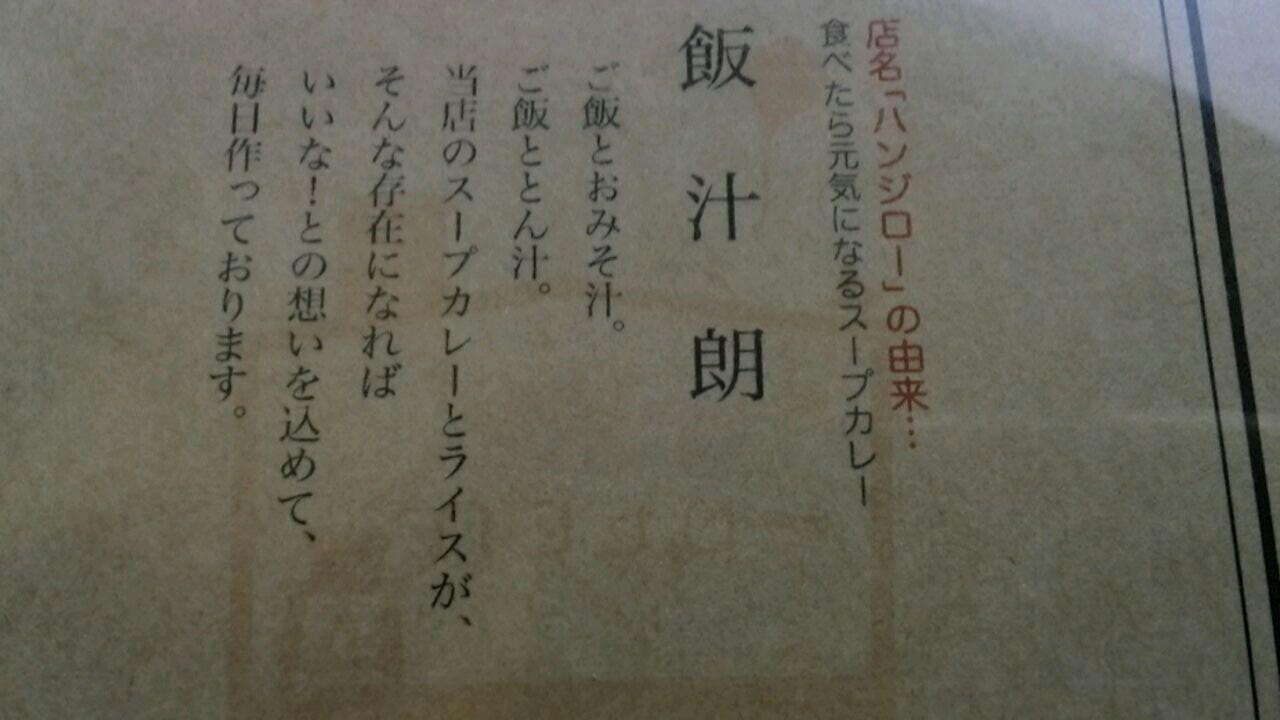 店名「ハンジロー」の由来…
食べたら元気になるスープカレー
飯汁朗
ご飯とおみそ汁。
ご飯ととん汁。
当店のスープカレーとライスが、
そんな存在になれば
いいな！との想いを込めて、
毎日作っております。